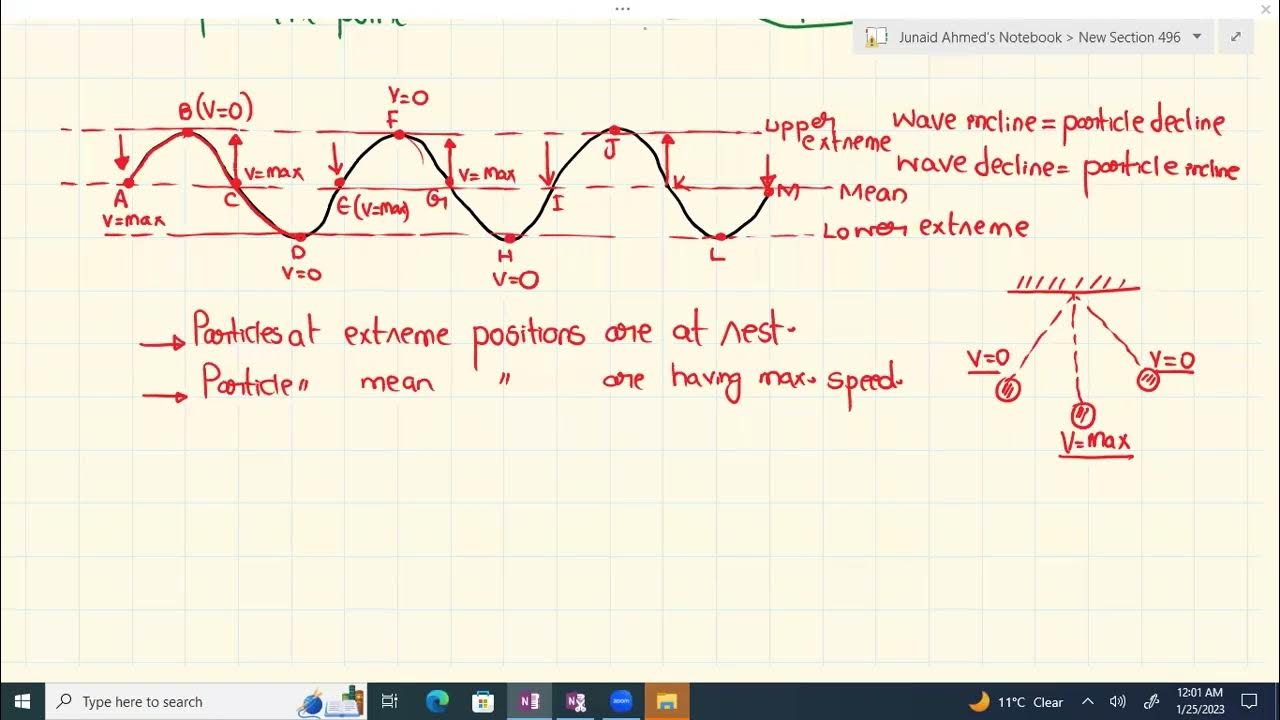 the point
Junaid Ahmed's Notebook > New Section 496
B (V=0)
V=0
F
J
Upper extreme
wave incline = particle decline
wave decline = particle incline
A
V=max
C
V=max
E (V=max)
G
V=max
I
K
M
Mean
D
V=0
H
V=0
L
Lower extreme
→ Particles at extreme positions are at rest.
→ Particle " mean " are having max. speed.
V=0
V=0
V=max
Type here to search
zoom
11°C Clear
12:01 AM
1/25/2023